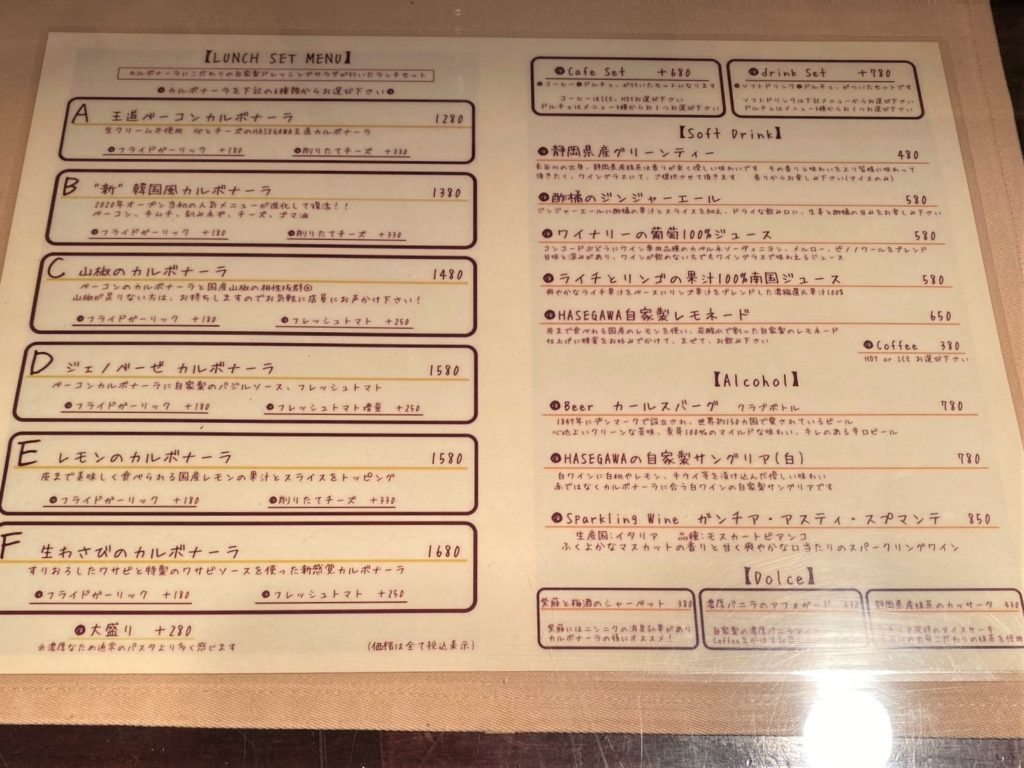 【LUNCH SET MENU】
カルボナーラにこだわりの自家製ドレッシングサラダが付いたランチセット
カルボナーラを下記の6種類からお選び下さい
A 王道ベーコンカルボナーラ 1280
生クリーム不使用 卵とチーズのHASEGAWA王道カルボナーラ
フライドガーリック +180 削りたてチーズ +330
B "新" 韓国風カルボナーラ 1380
2020年オープン当初の人気メニューが進化して復活!!
ベーコン、キムチ、刻みネギ、チーズ、ゴマ油
フライドガーリック +180 削りたてチーズ +330
C 山椒のカルボナーラ 1480
ベーコンのカルボナーラと国産山椒の相性抜群
山椒が足りない方は、お持ちしますのでお気軽に店員にお声かけ下さい!
フライドガーリック +180 フレッシュトマト +250
D ジェノベーゼ カルボナーラ 1580
ベーコンカルボナーラに自家製のバジルソース、フレッシュトマト
フライドガーリック +180 フレッシュトマト増量 +250
E レモンのカルボナーラ 1580
皮まで美味しく食べられる国産レモンの果汁とスライスをトッピング
フライドガーリック +180 削りたてチーズ +330
F 生わさびのカルボナーラ 1680
すりおろしたワサビと特製のワサビソースを使った新感覚カルボナーラ
フライドガーリック +180 フレッシュトマト +250
大盛り +280
※濃厚なため通常のパスタより多く感じます (価格は全て税込表示)
Cafe Set +680
コーヒー ドルチェ、が付いたセットになります
コーヒーはICE、HOTお選び下さい
ドルチェはメニュー3種からお1つお選び下さい
drink Set +780
ソフトドリンク ドルチェ、がついたセットです
ソフトドリンクは下記メニューからお選び下さい
ドルチェはメニュー3種からお1つお選び下さい
【Soft Drink】
静岡県産グリーンティー 480
長谷川の出身、静岡県産抹茶は香りが良く優しい味わいです その香りと味わいをより皆様に味わって
頂きたく、ワイングラスにて、ご提供させて頂きます 香りからお楽しみ下さい(アイスのみ)
酢橘のジンジャーエール 580
ジンジャーエールに酢橘の果汁とスライスを加え、ドライな飲み口に、生姜と酢橘の甘みをお楽しみ下さい
ワイナリーの葡萄100%ジュース 580
コンコードぶどうにワイン専用品種のカベルネソーヴィニヨン、メルロー、ピノノワールをブレンド
甘味と深みがあり、ワインが飲めない方でもワイングラスで味わえるジュース
ライチとリンゴの果汁100%南国ジュース 580
爽やかなライチ果汁をベースにリンゴ果汁をブレンドした濃縮還元果汁100%
HASEGAWA自家製レモネード 650
皮まで食べれる国産のレモンを使い、炭酸水で割った自家製のレモネード
仕上げに蜂蜜をお好みでかけて、まぜて、お飲み下さい
Coffee 380
HOT or ICE お選び下さい
【Alcohol】
Beer カールスバーグ クラブボトル 780
1847年にデンマークで設立され、世界約150カ国で愛されているビール
心地よいクリーンな苦味、麦芽100%のマイルドな味わい、キレのある辛口ビール
HASEGAWAの自家製サングリア(白) 780
白ワインに白桃やレモン、キウイ等を漬け込んだ優しい味わい
赤ではなくカルボナーラに合う白ワインの自家製サングリアです
Sparkling Wine ガンチア・アスティ・スプマンテ 850
生産国:イタリア 品種:モスカートビアンコ
ふくよかなマスカットの香りと甘く爽やかな口当たりのスパークリングワイン
【Dolce】
紫蘇と梅酒のシャーベット 380
紫蘇にはニンニクの消臭効果があり
カルボナーラの後にオススメ!
濃厚バニラのアフォガード 430
自家製の濃厚バニラアイス
Coffeeをかけてお召
静岡県産抹茶のカッサータ 430
アイスケーキ
の出身こだわりの抹茶を使用